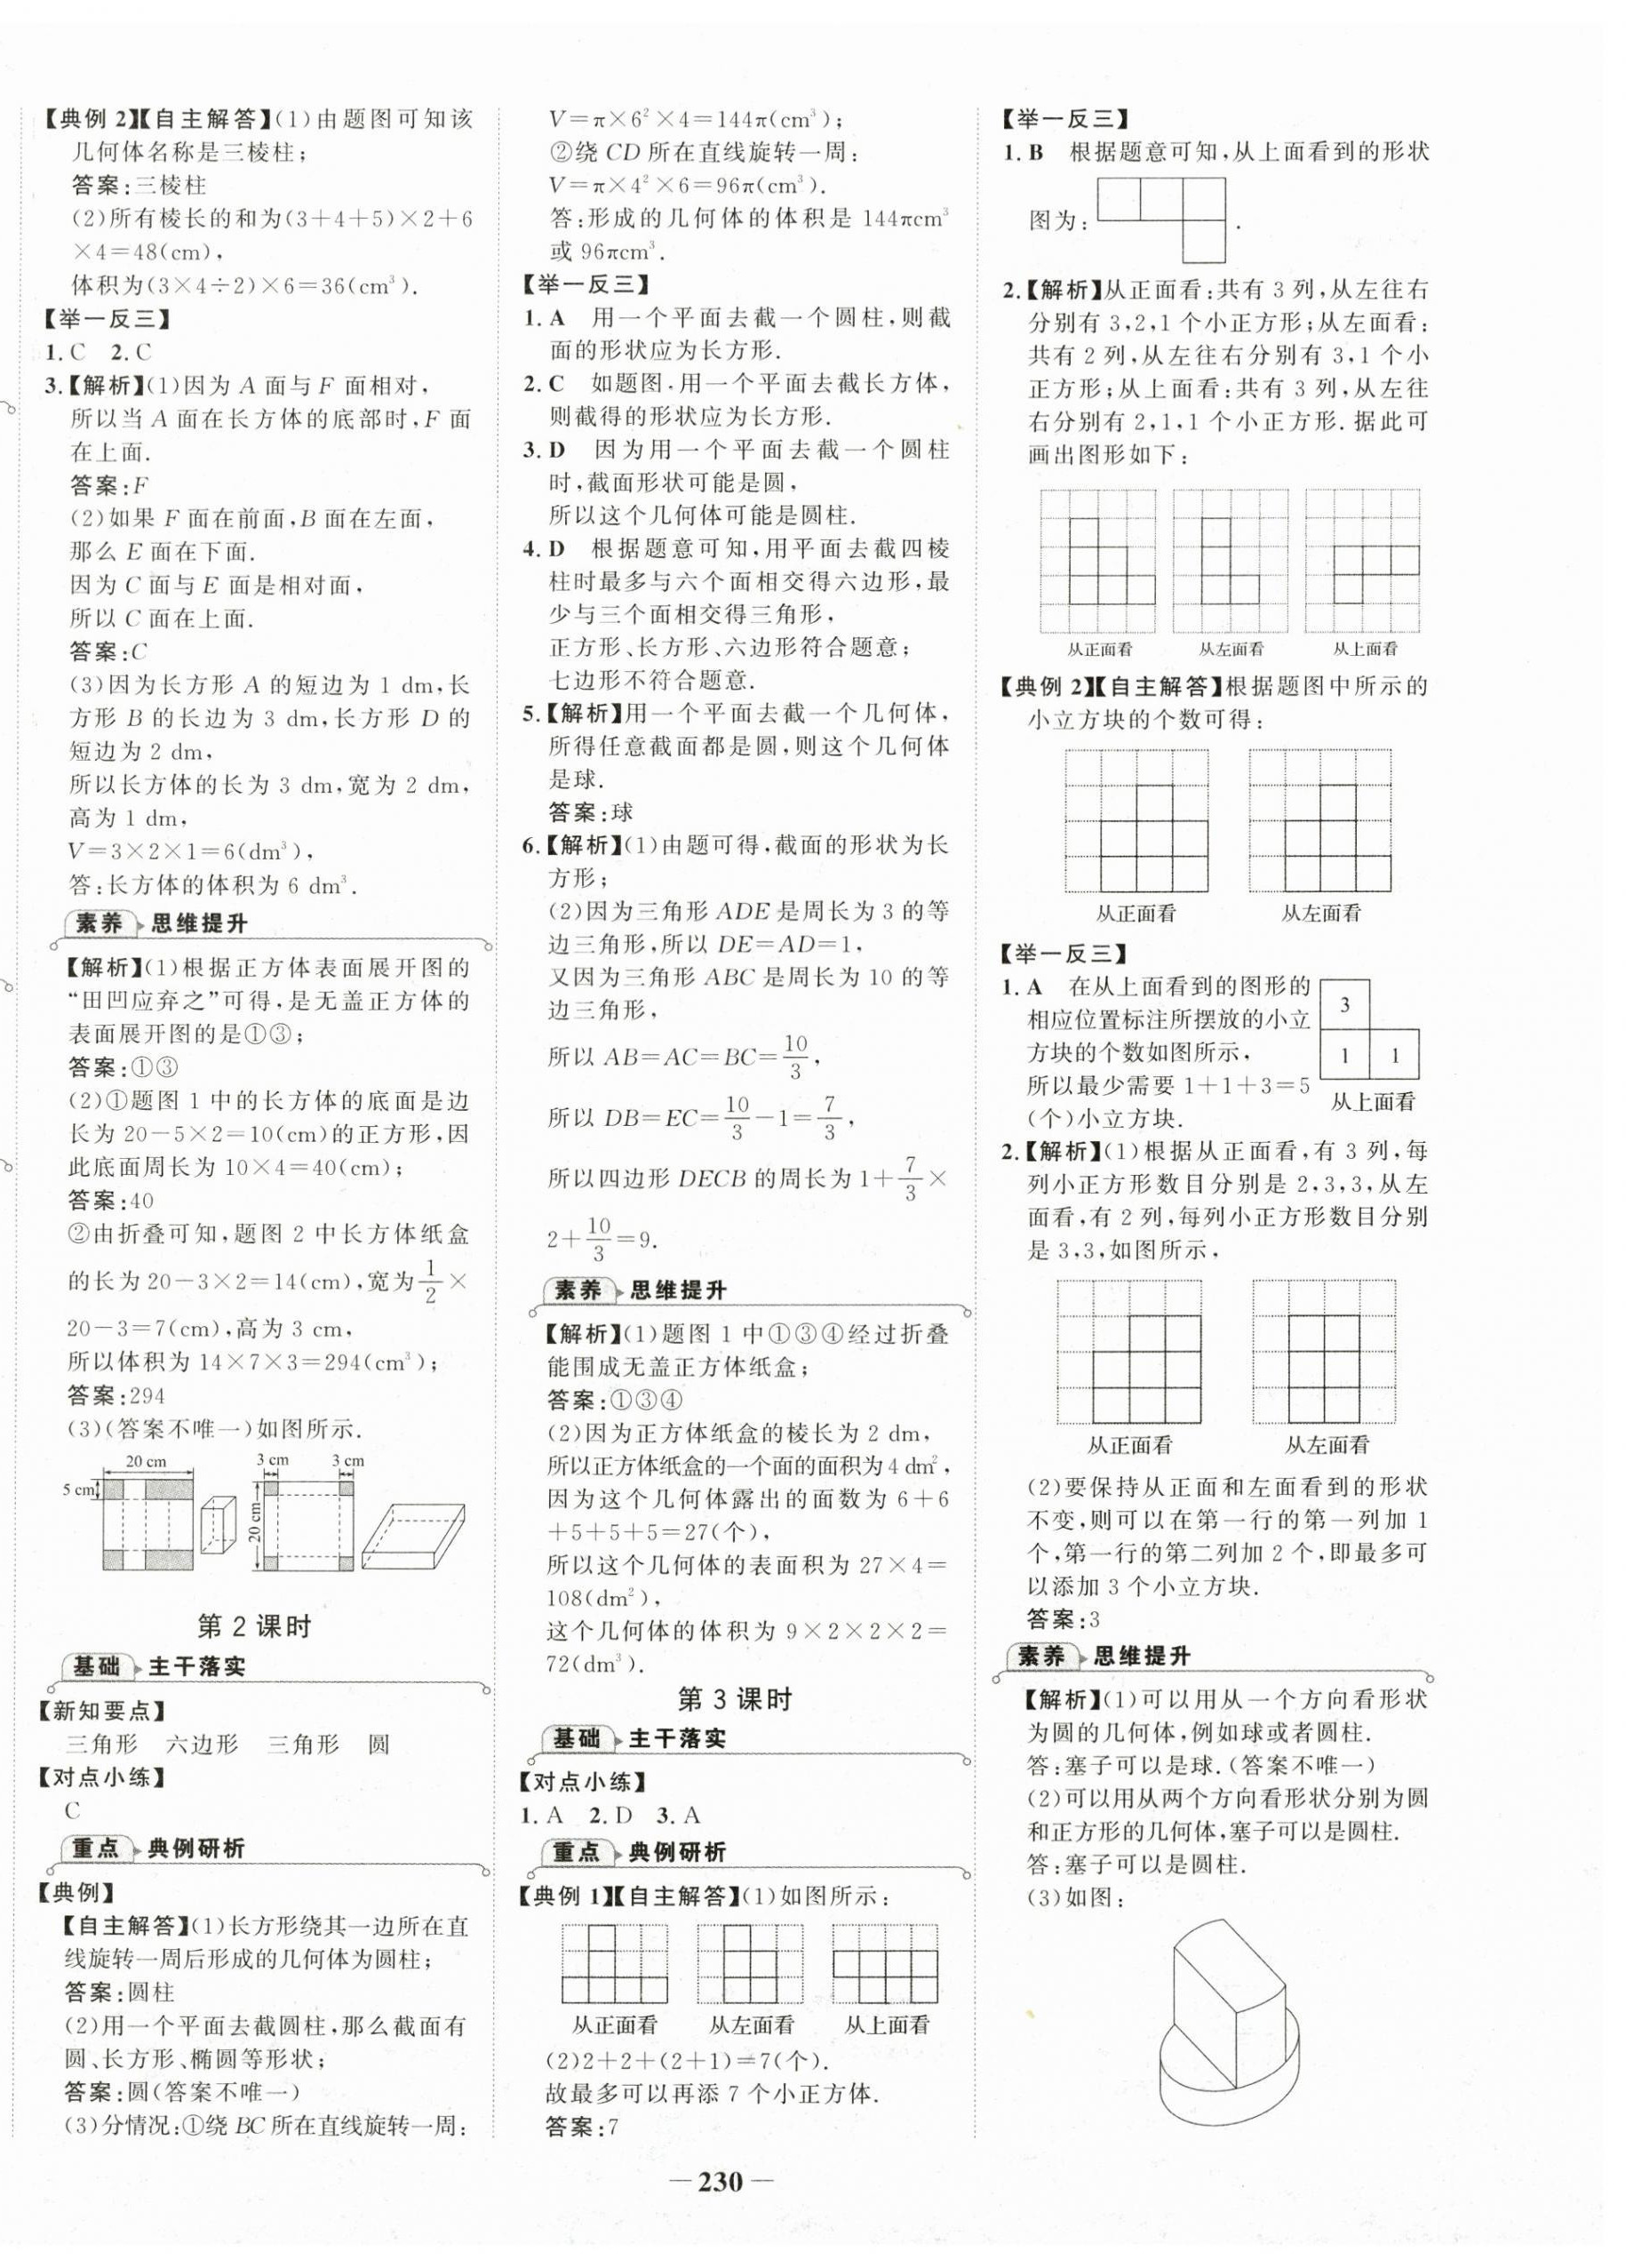 【典例 2】【自主解答】(1)由题图可知该
几何体名称是三棱柱;
答案:三棱柱
(2)所有棱长的和为(3+4+5)×2+6
×4=48(cm),
体积为(3×4÷2)×6=36(cm³).
【举一反三】
1. C 2. C
3.【解析】(1)因为 A 面与 F 面相对,
所以当 A 面在长方体的底部时,F 面
在上面.
答案:F
(2)如果 F 面在前面,B 面在左面,
那么 E 面在下面.
因为 C 面与 E 面是相对面,
所以 C 面在上面.
答案:C
(3)因为长方形 A 的短边为 1 dm,长
方形 B 的长边为 3 dm,长方形 D 的
短边为 2 dm,
所以长方体的长为 3 dm,宽为 2 dm,
高为 1 dm,
V=3×2×1=6(dm³),
答:长方体的体积为 6 dm³.
素养 思维提升
【解析】(1)根据正方体表面展开图的
“田凹应弃之”可得,是无盖正方体的
表面展开图的是①③;
答案:①③
(2)①题图 1 中的长方体的底面是边
长为 20-5×2=10(cm)的正方形,因
此底面周长为 10×4=40(cm);
答案:40
②由折叠可知,题图 2 中长方体纸盒
的长为 20-3×2=14(cm),宽为 1/2 ×
20-3=7(cm),高为 3 cm,
所以体积为 14×7×3=294(cm³);
答案:294
(3)(答案不唯一)如图所示.
20 cm 3 cm 3 cm
5 cm
20 cm
第 2 课时
基础 主干落实
【新知要点】
三角形 六边形 三角形 圆
【对点小练】
C
重点 典例研析
【典例】
【自主解答】(1)长方形绕其一边所在直
线旋转一周后形成的几何体为圆柱;
答案:圆柱
(2)用一个平面去截圆柱,那么截面有
圆、长方形、椭圆等形状;
答案:圆(答案不唯一)
(3)分情况:①绕 BC 所在直线旋转一周:
V=π×6²×4=144π(cm³);
②绕 CD 所在直线旋转一周:
V=π×4²×6=96π(cm³).
答:形成的几何体的体积是 144πcm³
或 96πcm³.
【举一反三】
1. A 用一个平面去截一个圆柱,则截
面的形状应为长方形.
2. C 如题图,用一个平面去截长方体,
则截得的形状应为长方形.
3. D 因为用一个平面去截一个圆柱
时,截面形状可能是圆,
所以这个几何体可能是圆柱.
4. D 根据题意可知,用平面去截四棱
柱时最多与六个面相交得六边形,最
少与三个面相交得三角形,
正方形、长方形、六边形符合题意;
七边形不符合题意.
5.【解析】用一个平面去截一个几何体,
所得任意截面都是圆,则这个几何体
是球.
答案:球
6.【解析】(1)由题可得,截面的形状为长
方形;
(2)因为三角形 ADE 是周长为 3 的等
边三角形,所以 DE=AD=1,
又因为三角形 ABC 是周长为 10 的等
边三角形,
所以 AB=AC=BC=10/3,
所以 DB=EC=10/3-1=7/3,
所以四边形 DECB 的周长为 1+7/3×
2+10/3=9.
素养 思维提升
【解析】(1)题图 1 中①③④经过折叠
能围成无盖正方体纸盒;
答案:①③④
(2)因为正方体纸盒的棱长为 2 dm,
所以正方体纸盒的一个面的面积为 4 dm²,
因为这个几何体露出的面数为 6+6
+5+5+5=27(个),
所以这个几何体的表面积为 27×4=
108(dm²),
这个几何体的体积为 9×2×2×2=
72(dm³).
第 3 课时
基础 主干落实
【对点小练】
1. A 2. D 3. A
重点 典例研析
【典例 1】【自主解答】(1)如图所示:
从正面看 从左面看 从上面看
(2)2+2+(2+1)=7(个).
故最多可以再添 7 个小正方体.
答案:7
【举一反三】
1. B 根据题意可知,从上面看到的形状
图为: .
2.【解析】从正面看:共有 3 列,从左往右
分别有 3,2,1 个小正方形;从左面看:
共有 2 列,从左往右分别有 3,1 个小
正方形;从上面看:共有 3 列,从左往
右分别有 2,1,1 个小正方形.据此可
画出图形如下:
从正面看 从左面看 从上面看
【典例 2】【自主解答】根据题图中所示的
小立方块的个数可得:
从正面看 从左面看
【举一反三】
1. A 在从上面看到的图形的
相应位置标注所摆放的小立
方块的个数如图所示,
所以最少需要 1+1+3=5
(个)小立方块.
3
1 1
从上面看
2.【解析】(1)根据从正面看,有 3 列,每
列小正方形数目分别是 2,3,3,从左
面看,有 2 列,每列小正方形数目分别
是 3,3,如图所示,
从正面看 从左面看
(2)要保持从正面和左面看到的形状
不变,则可以在第一行的第一列加 1
个,第一行的第二列加 2 个,即最多可
以添加 3 个小立方块.
答案:3
素养 思维提升
【解析】(1)可以用从一个方向看形状
为圆的几何体,例如球或者圆柱.
答:塞子可以是球.(答案不唯一)
(2)可以用从两个方向看形状分别为圆
和正方形的几何体,塞子可以是圆柱.
答:塞子可以是圆柱.
(3)如图:
— 230 —